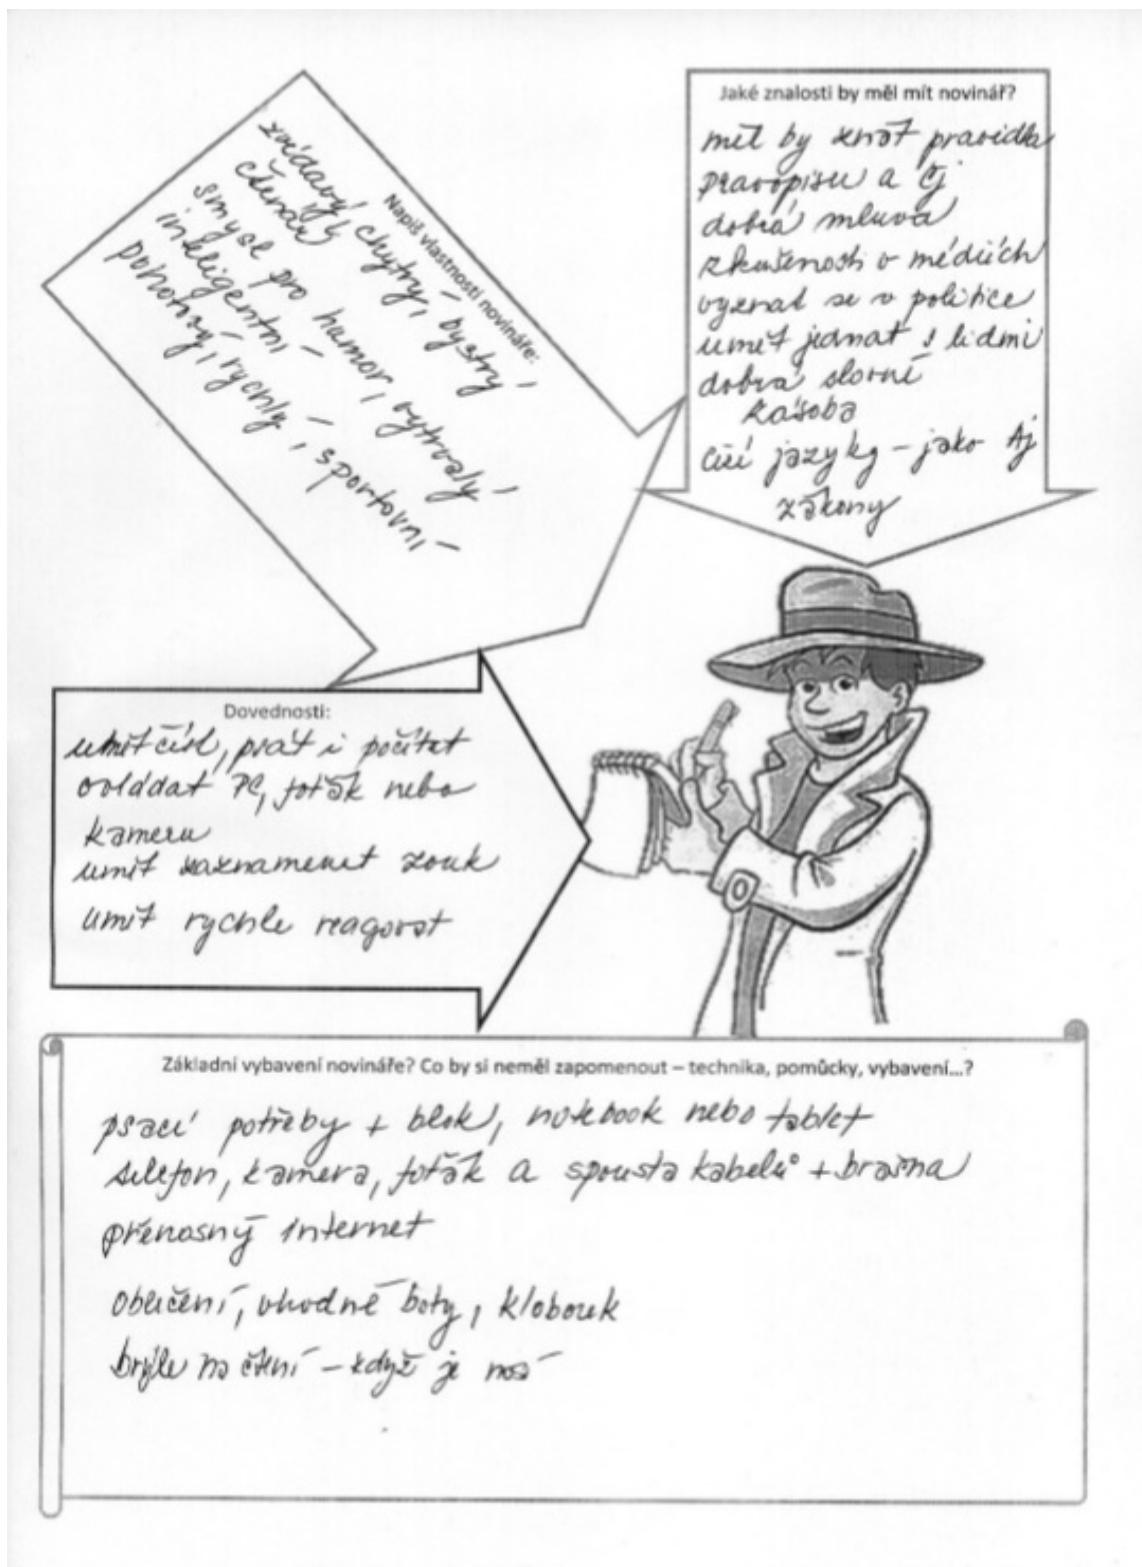 Napiš vlastnosti novináře:
zvídavý, chytrý, bystrý
čtenář
smysl pro humor, vytrvalý
inteligentní
pohotový, rychlý, sportovní
Jaké znalosti by měl mít novinář?
měl by znát pravidla
pravopisu a čj
dobrá mluva
zkušenosti v médiích
vyznat se v politice
umět jednat s lidmi
dobrá slovní
zásoba
cizí jazyky – jako Aj
zákony
Dovednosti:
umět číst, psát i počítat
ovládat PC, foťák nebo
kameru
umět zaznamenat zvuk
umět rychle reagovat
Základní vybavení novináře? Co by si neměl zapomenout – technika, pomůcky, vybavení...?
psací potřeby + blok, notebook nebo tablet
telefon, kamera, foťák a spousta kabelů + brašna
přenosný internet
oblečení, vhodné boty, klobouk
brýle na čtení – když je nosí